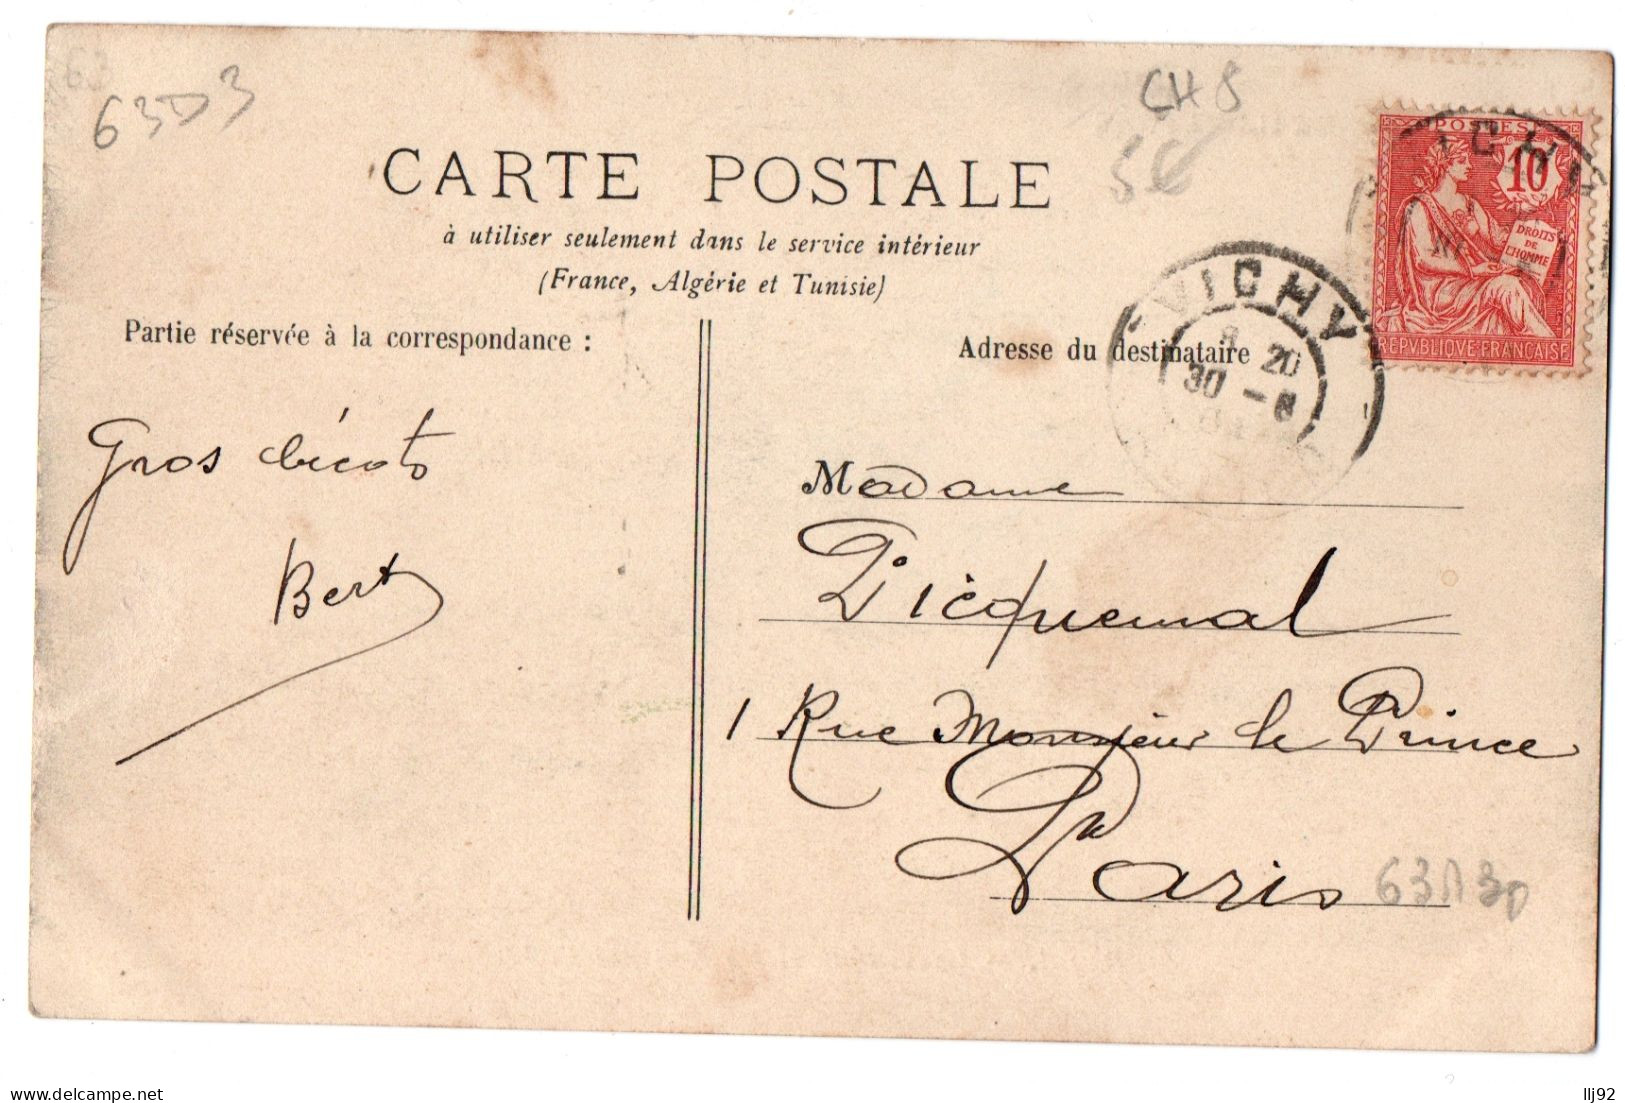 63
63D3
CH 8
5€
CARTE POSTALE
à utiliser seulement dans le service intérieur
(France, Algérie et Tunisie)
POSTES
10
DROITS
DE
L'HOMME
REPVBLIQVE FRANÇAISE
VICHY
8 20
30 - 8
Partie réservée à la correspondance :
Adresse du destinataire
Gros bécots
Bert
Madame
Dicquemal
1 Rue Monsieur le Prince
Paris
63D3D
llj92